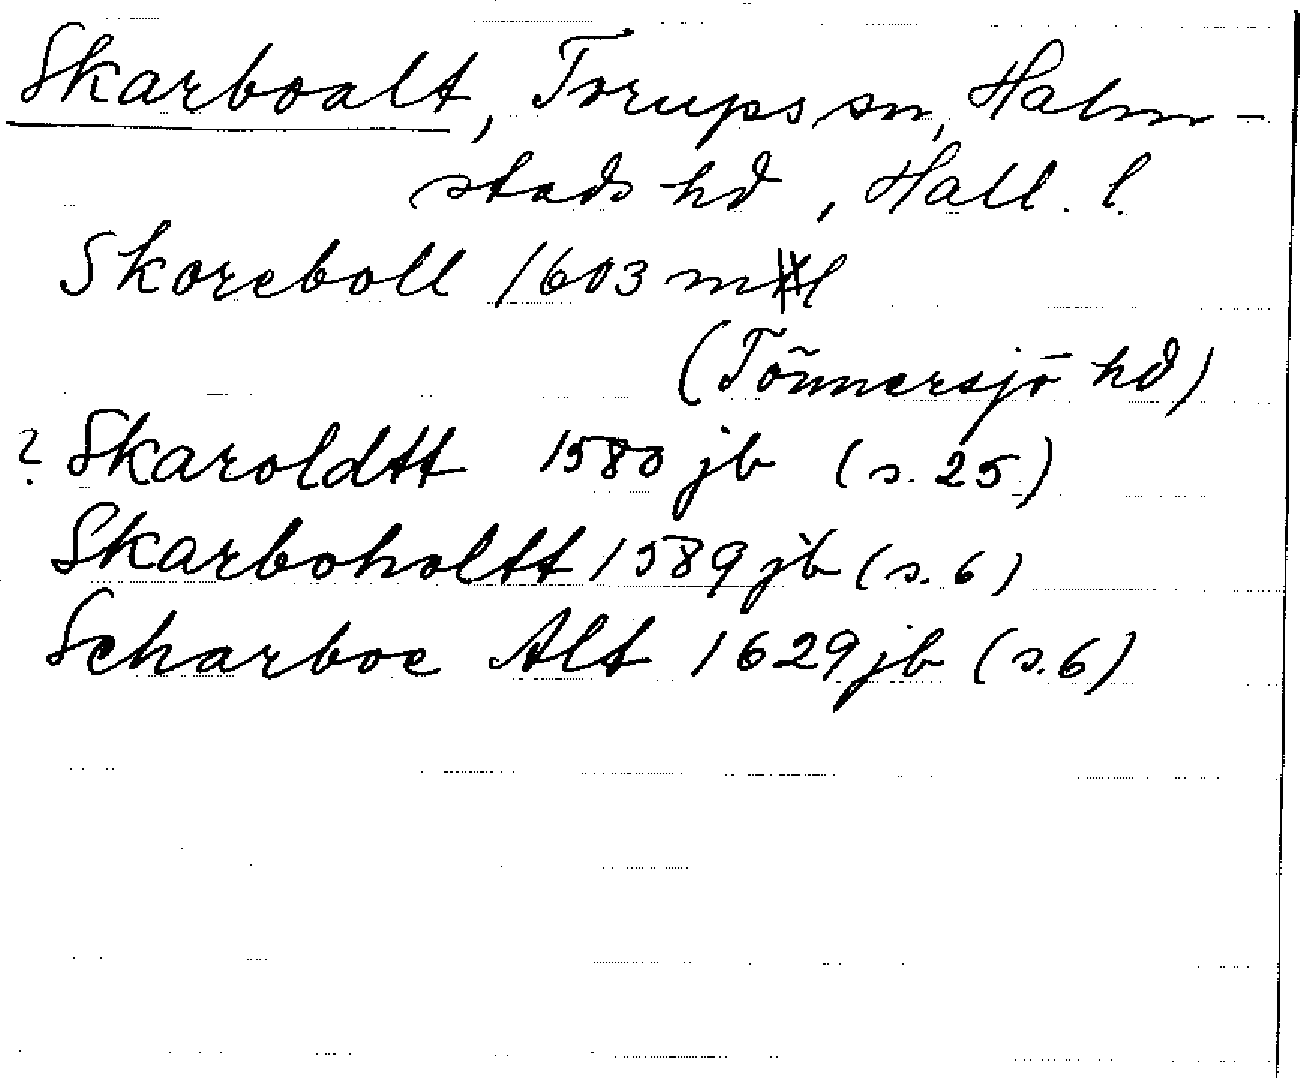 Skarboalt, Torups sn, Halm-
stads hd, Hall. l.
Skoreboll 1603 ml
(Tönnersjö hd)
? Skaroldtt 1580 jb (s. 25)
Skarboholtt 1589 jb (s. 6)
Scharboe Alt 1629 jb (s. 6)